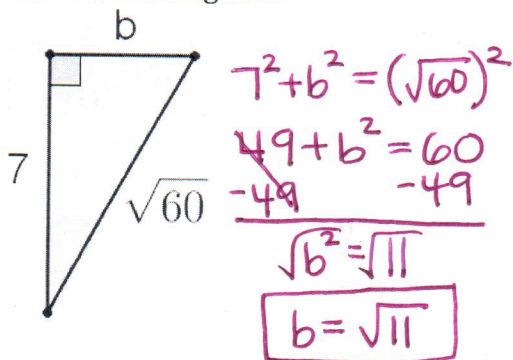 b
7
√60
7² + b² = (√60)²
49 + b² = 60
-49 -49
√b² = √11
b = √11